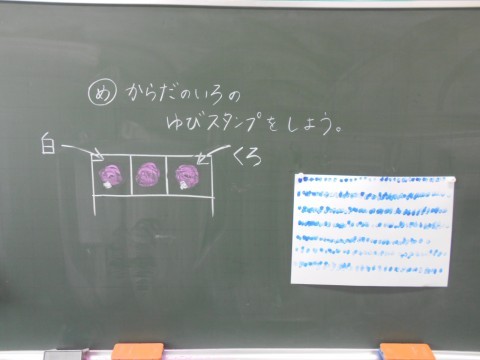 め からだのいろの
ゆびスタンプをしよう。
白
くろ